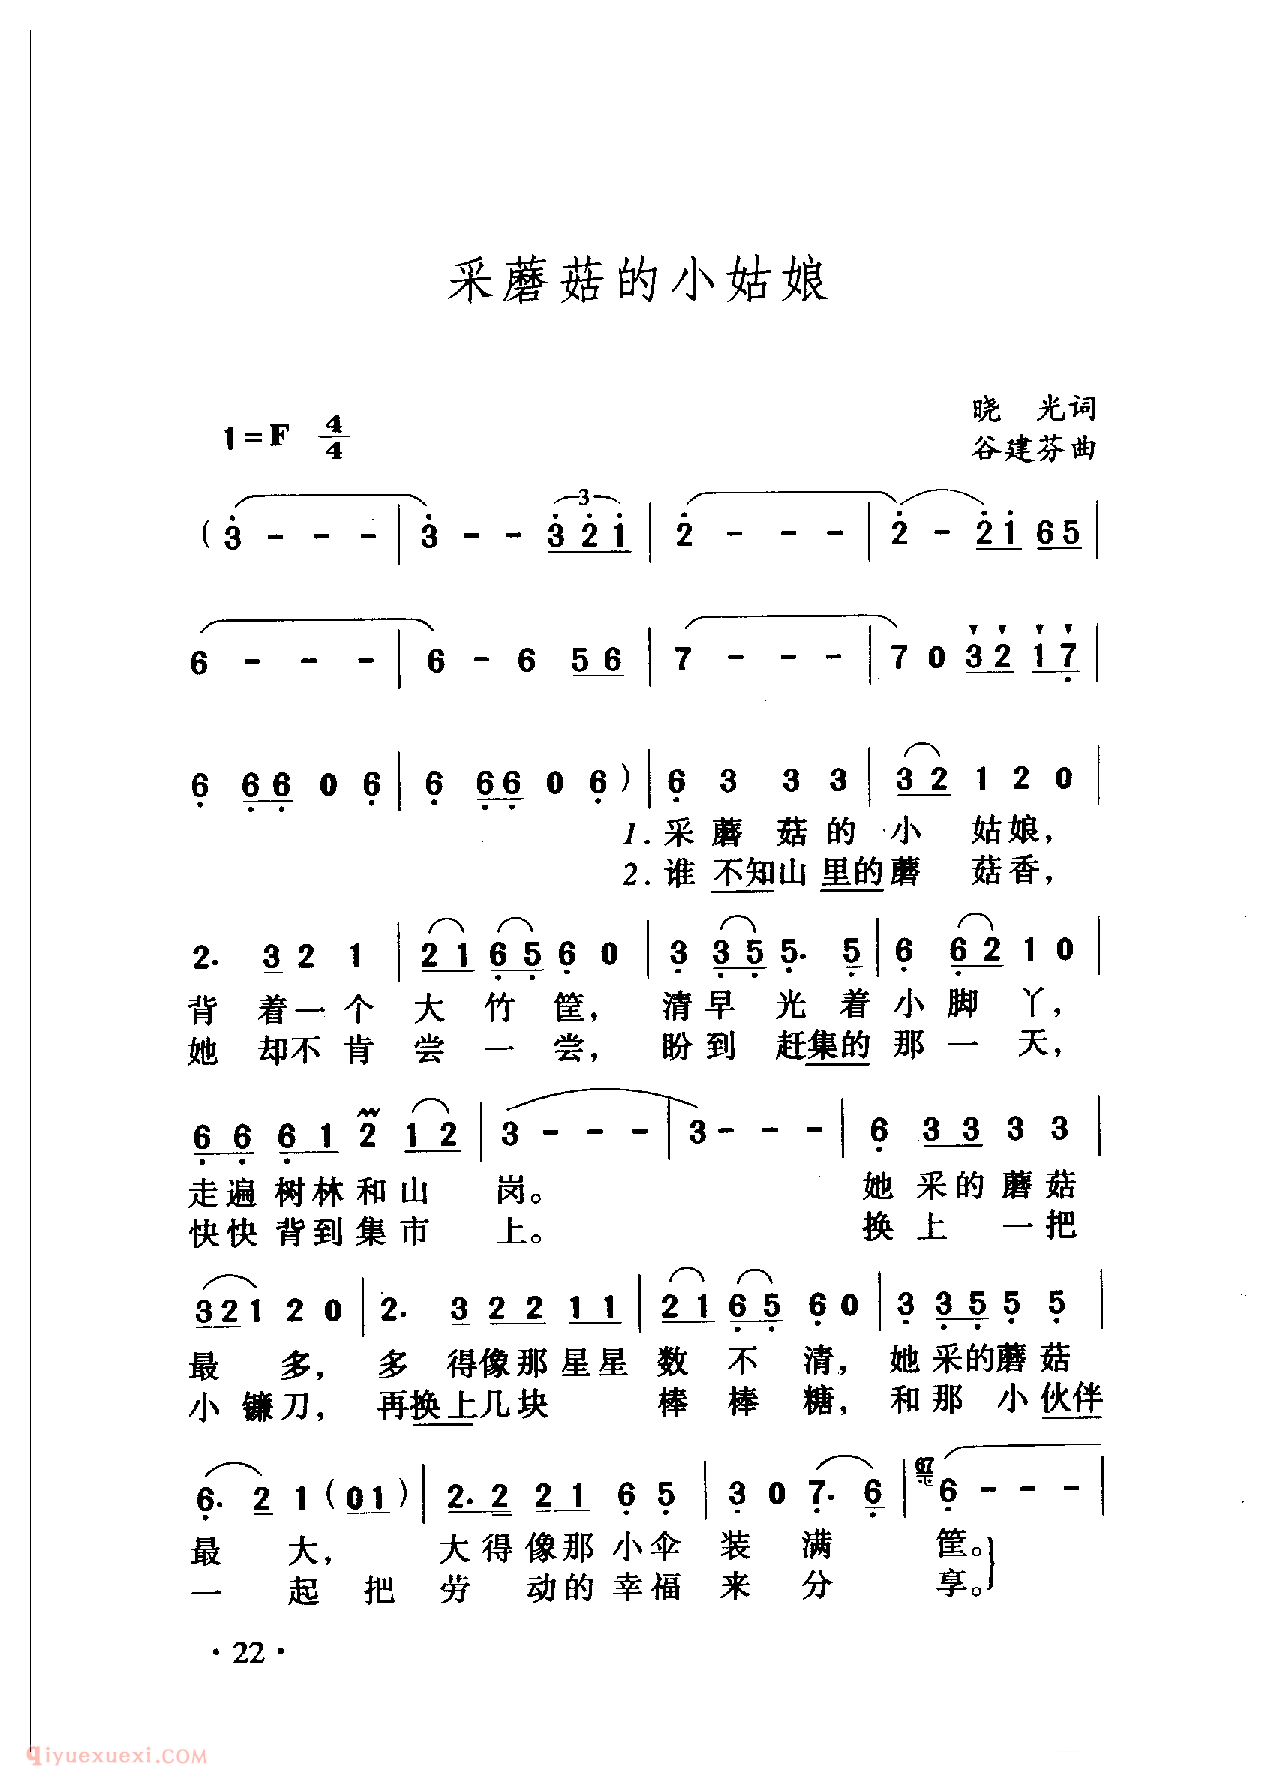 采蘑菇的小姑娘
晓 光词
1=F 4/4
谷建芬曲
(3 - - - | 3 - - 3 2 1 | 2 - - - | 2 - 2 1 6 5 |
3
6 - - - | 6 - 6 5 6 | 7 - - - | 7 0 3 2 1 7 |
6 6 6 0 6 | 6 6 6 0 6 ) | 6 3 3 3 | 3 2 1 2 0 |
1. 采 蘑 菇 的 小 姑 娘,
2. 谁 不知山 里的蘑 菇 香,
2. 3 2 1 | 2 1 6 5 6 0 | 3 3 5 5. 5 | 6 6 2 1 0 |
背 着 一 个 大 竹 筐, 清 早 光 着 小 脚 丫,
她 却 不 肯 尝 一 尝, 盼 到 赶集的 那 一 天,
6 6 6 1 2 1 2 | 3 - - - | 3 - - - | 6 3 3 3 3 |
走 遍 树 林 和 山 岗。 她 采 的 蘑 菇
快 快 背 到 集 市 上。 换 上 一 把
3 2 1 2 0 | 2. 3 2 2 1 1 | 2 1 6 5 6 0 | 3 3 5 5 5 |
最 多, 多 得像那星星 数 不 清, 她 采的蘑 菇
小 镰 刀, 再换上几块 棒 棒 糖, 和 那 小 伙伴
6. 2 1 (0 1) | 2. 2 2 1 6 5 | 3 0 7. 6 | 67 6 - - - |
最 大, 大 得 像 那 小 伞 装 满 筐。
一 起 把 劳 动 的 幸 福 来 分 享。
·22·
qiyuexuexi.COM